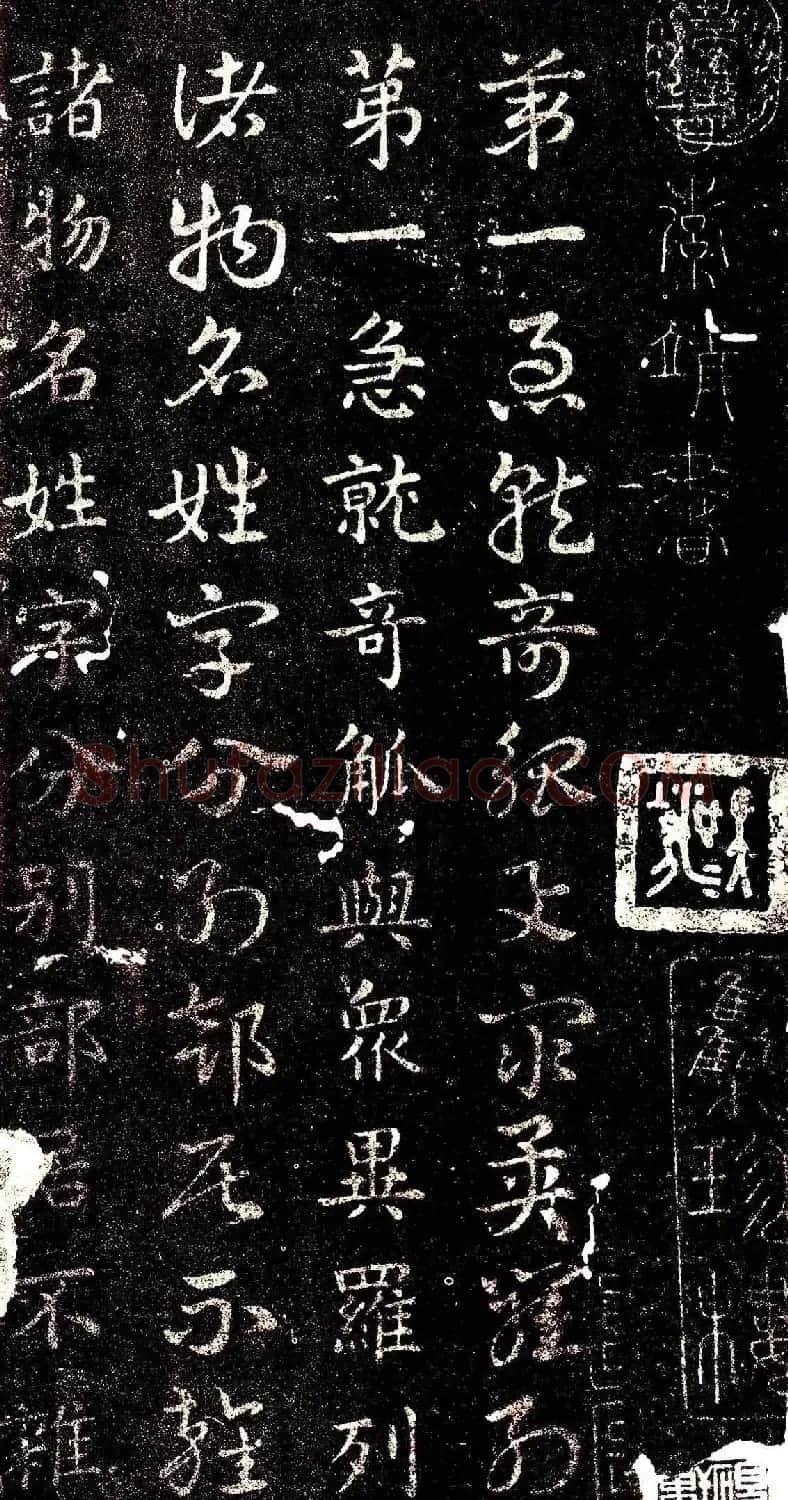 第一急就奇觚與衆異羅列
第一急就奇觚與衆異羅列
諸物名姓字分別部居不雜
諸物名姓字分別部居不雜
Shufaziliao.COM